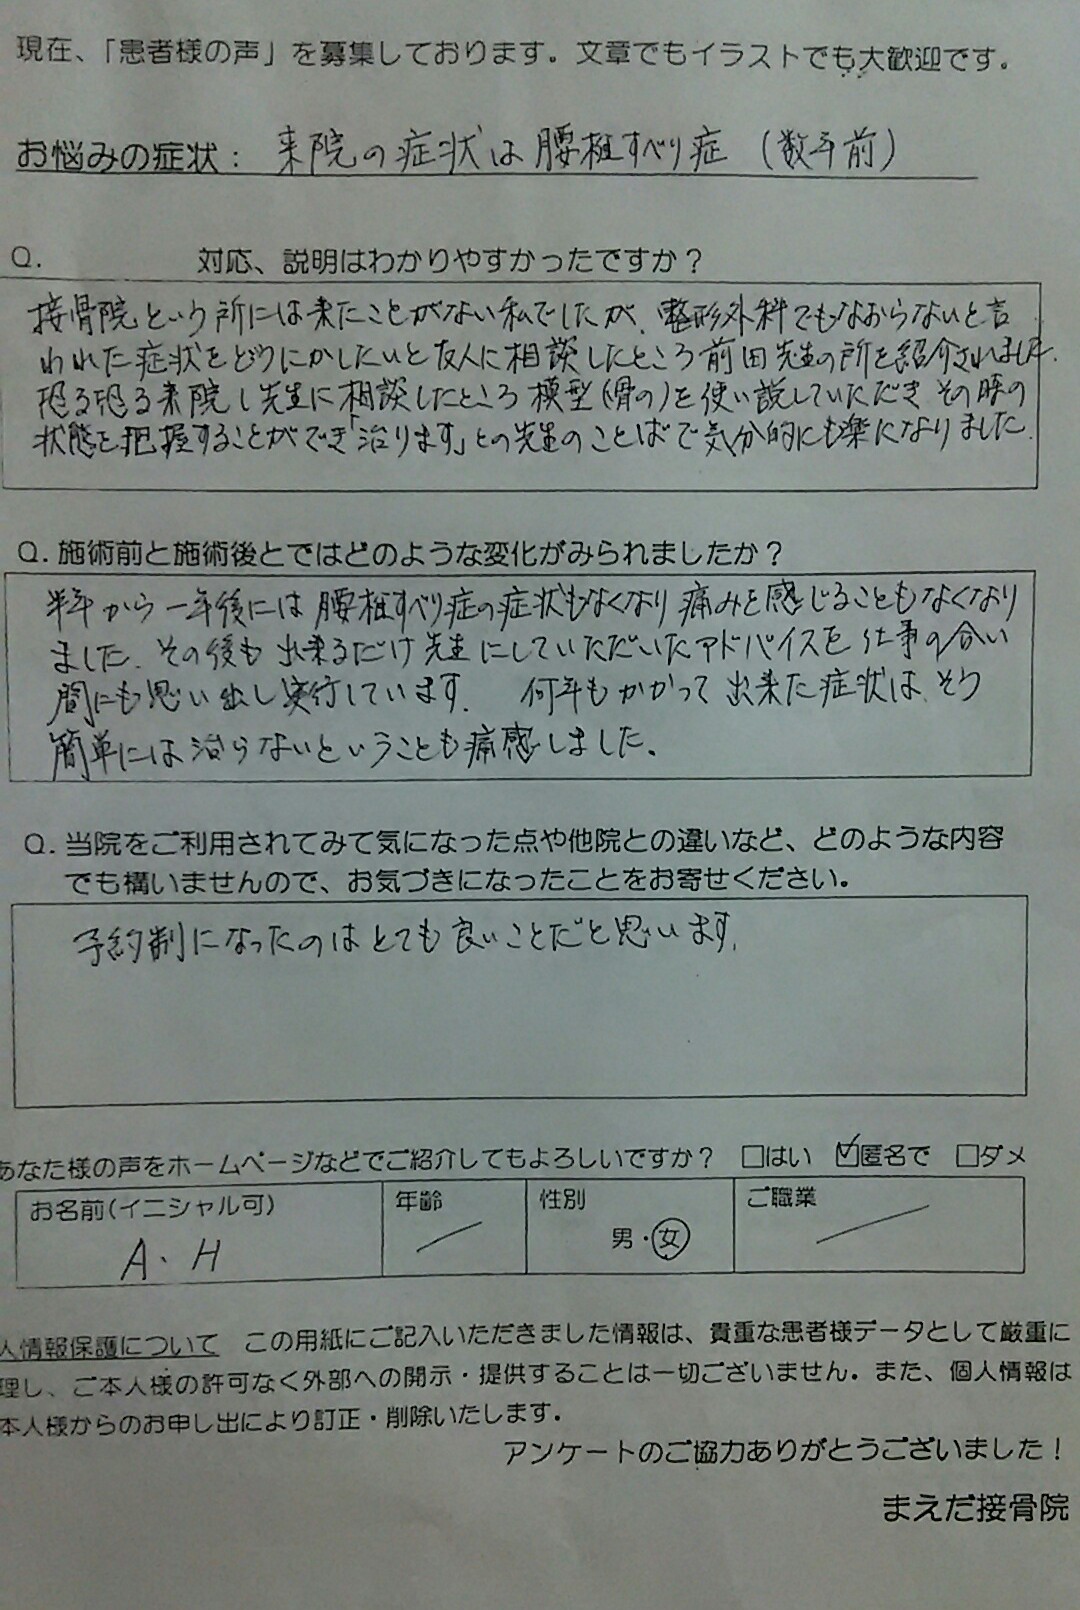 現在、「患者様の声」を募集しております。文章でもイラストでも大歓迎です。
お悩みの症状： 来院の症状は腰椎すべり症（数年前）
Q. 対応、説明はわかりやすかったですか？
接骨院という所には来たことがない私でしたが、整形外科でもなおらないと言
われた症状をどうにかしたいと友人に相談したところ前田先生の所を紹介されました.
恐る恐る来院し先生に相談したところ模型(骨の)を使い説していただき その時の
状態を把握することができ「治ります」との先生のことばで気分的にも楽になりました.
Q. 施術前と施術後とではどのような変化がみられましたか？
半年から一年後には腰椎すべり症の症状もなくなり痛みを感じることもなくなり
ました. その後も出来るだけ先生にしていただいたアドバイスを仕事の合い
間にも思い出し実行しています. 何年もかかって出来た症状は、そう
簡単には治らないということも痛感しました、
Q. 当院をご利用されてみて気になった点や他院との違いなど、どのような内容
でも構いませんので、お気づきになったことをお寄せください。
予約制になったのはとても良いことだと思います.
あなた様の声をホームページなどでご紹介してもよろしいですか？ □はい ☑匿名で □ダメ
お名前(イニシャル可) 年齢 性別 ご職業
A. H 男・女
人情報保護について この用紙にご記入いただきました情報は、貴重な患者様データとして厳重に
理し、ご本人様の許可なく外部への開示・提供することは一切ございません。また、個人情報は
本人様からのお申し出により訂正・削除いたします。
アンケートのご協力ありがとうございました！
まえだ接骨院